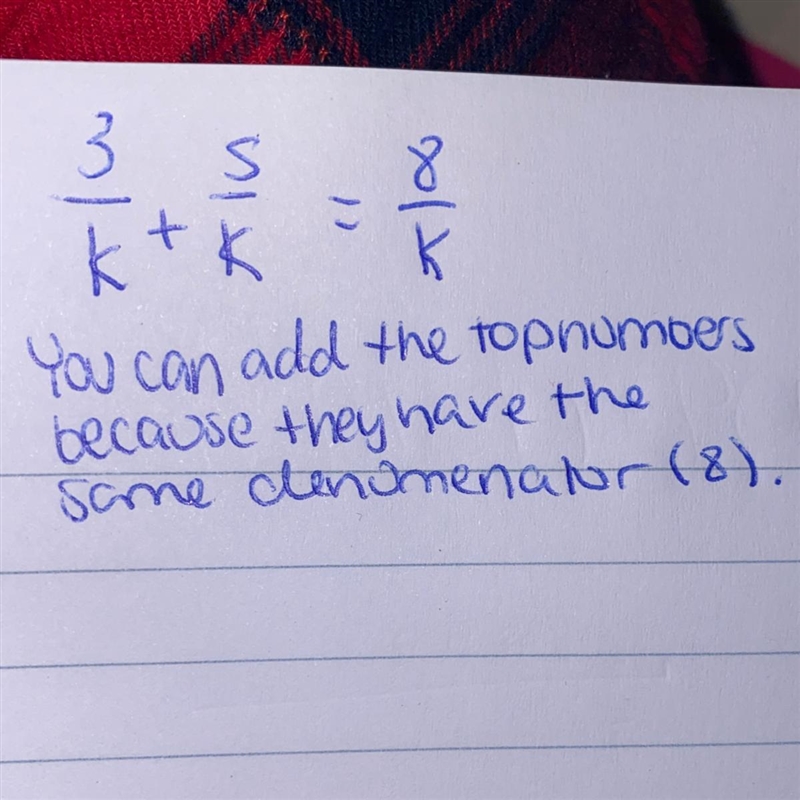 3/k + 5/k = 8/k
You can add the topnumbers
because they have the
same denomenator (8).